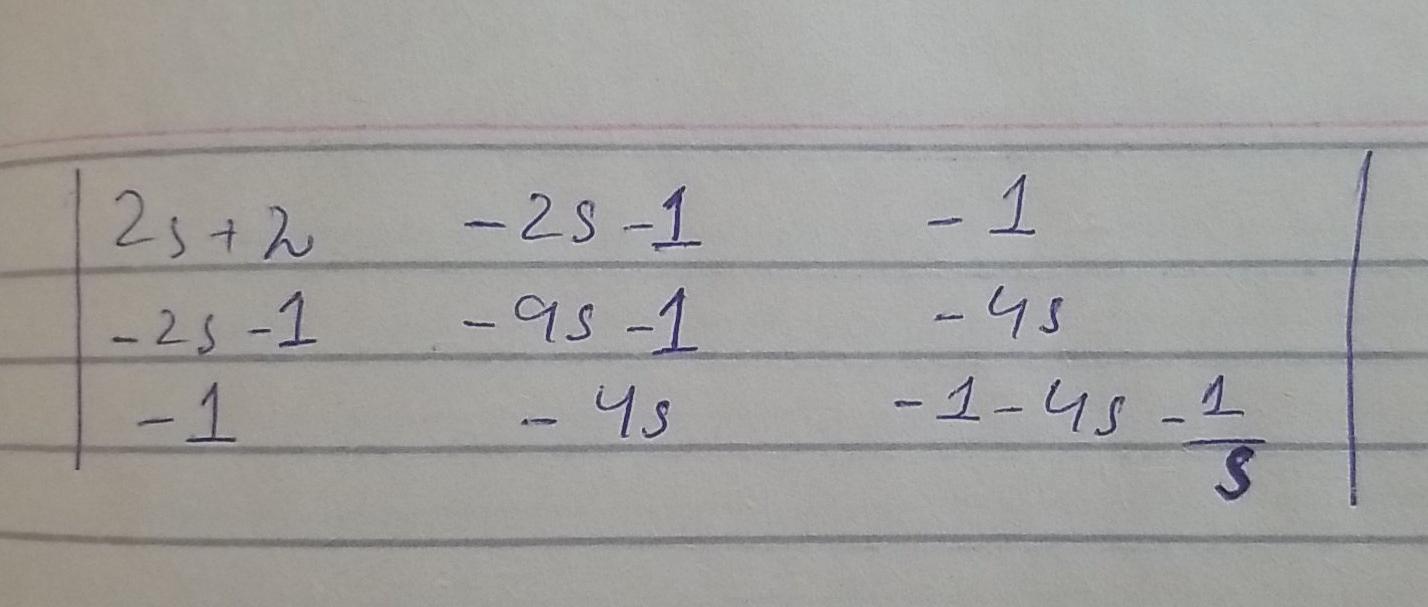 | 2s+2 -2s-1 -1 |
| -2s-1 -9s-1 -4s |
| -1 -4s -1-4s-1/s |